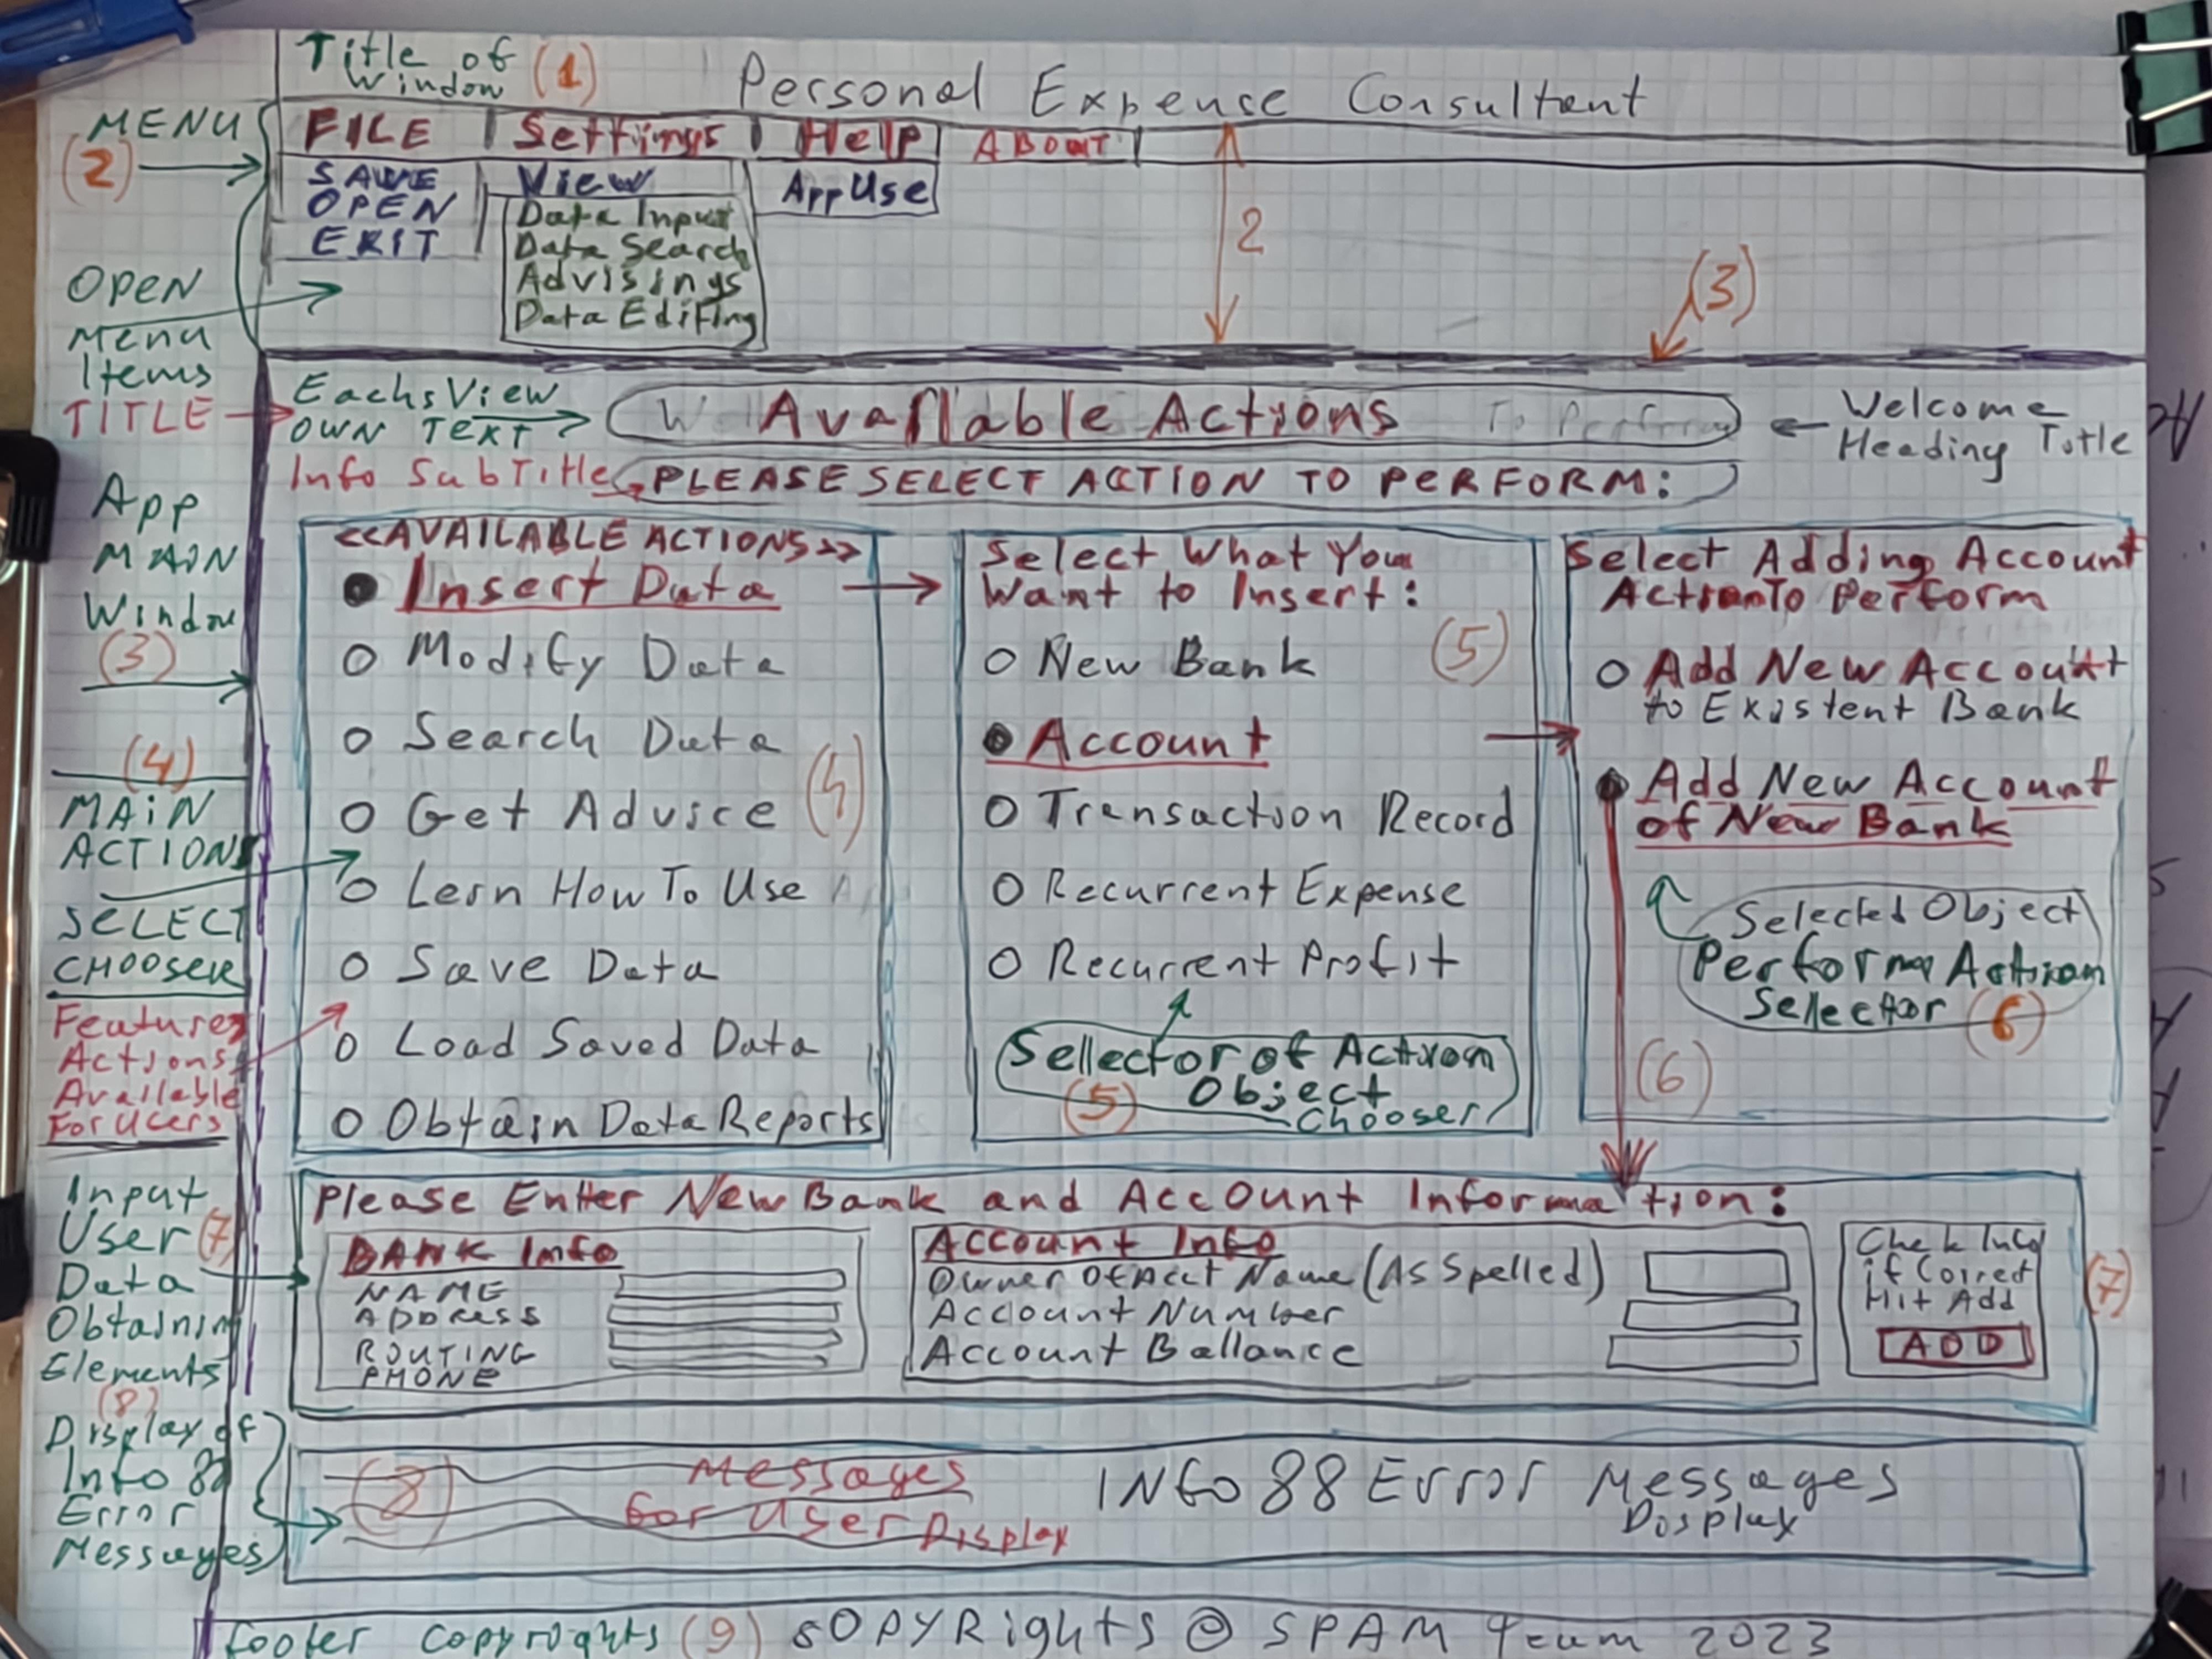 Title of
Window (1)
Personal Expense Consultant
MENU
(2)
FILE Settings Help ABOUT
SAVE
OPEN
EXIT
View
Data Input
Data Search
Advisings
Data Editing
AppUse
2
(3)
OPEN
Menu
Items
TITLE
Eachs View
OWN TEXT
Available Actions
To Perform
Welcome
Heading Totle
Info SubTitle
PLEASE SELECT ACTION TO PERFORM:
App
MAIN
Window
(3)
(4)
MAIN
ACTIONS
SELECT
CHOOSER
Features
Actions
Available
For Ucers
<<AVAILABLE ACTIONS>>
Insert Data
Modify Data
Search Data
Get Advice (4)
Lern How To Use
Save Data
Load Saved Data
Obtain Data Reports
Select What You
Want to Insert:
New Bank (5)
Account
Transaction Record
Recurrent Expense
Recurrent Profit
Sellector of Action
Object
(5) Chooser
Select Adding Account
Action To Perform
Add New Account
to Existent Bank
Add New Account
of New Bank
Selected Object
Perform Action
Selector (6)
(6)
Input
User (7)
Data
Obtaining
Elements
(8)
Display of
Info &
Error
Messages
Please Enter New Bank and Account Information:
BANK Info
NAME
ADDRESS
ROUTING
PHONE
Account Info
Owner Of Acct Name (As Spelled)
Account Number
Account Ballance
Check Info
if Correct
Hit Add
ADD
(7)
(8)
Messages
for User Display
INfo 88 Error Messages
Dosplay
footer copyroghts (9) COPYRights @ SPAM Team 2023